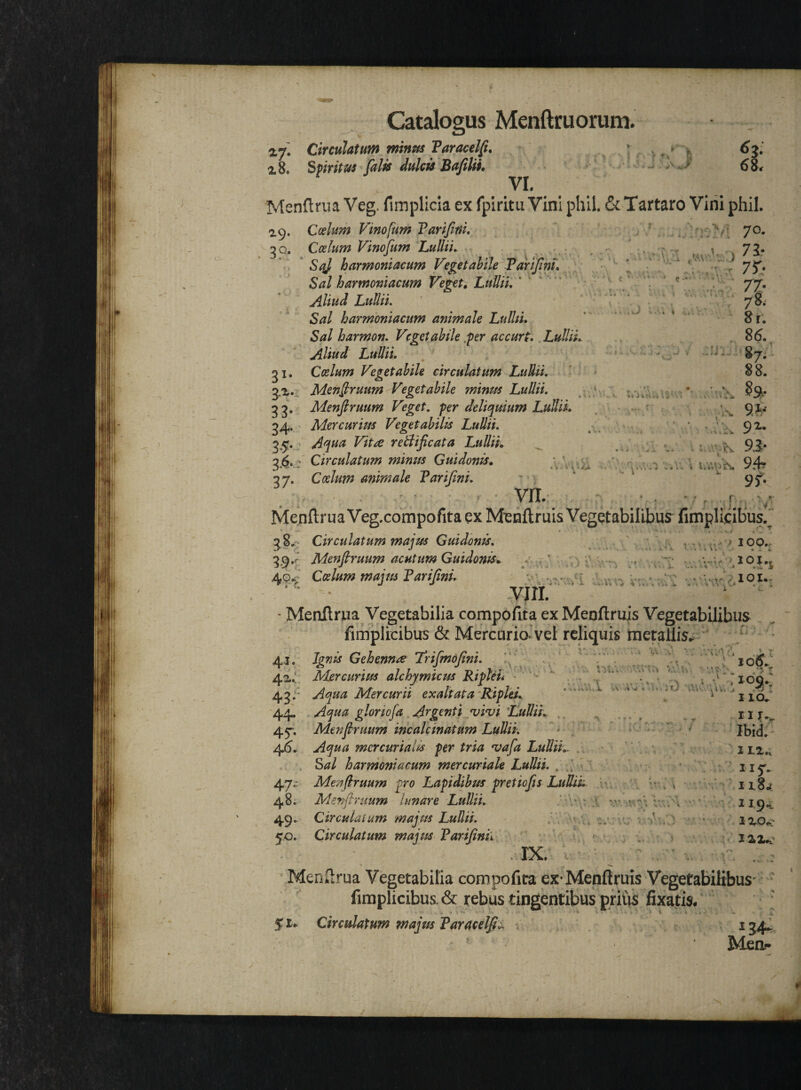 Catalogus Menſtruorum.
27. Circulatum minus Paracelſi. 63.
28. Spiritus ſalis dulcis Baſilii. 68.
VI.
Menſtrua Veg. ſimplicia ex ſpiritu Vini phil. & Tartaro Vini phil.
29. Cœlum Vinoſum Pariſini. 70.
30. Cœlum Vinoſum Lullii. 73.
Sal harmoniacum Vegetabile Pariſini. 75.
Sal harmoniacum Veget. Lullii. 77.
Aliud Lullii. 78.
Sal harmoniacum animale Lullii. 81.
Sal harmon. Vegetabile per accurt. Lullii. 86.
Aliud Lullii. 87.
31. Cœlum Vegetabile circulatum Lullii. 88.
32. Menſtruum Vegetabile minus Lullii. 89.
33. Menſtruum Veget. per deliquium Lullii. 91.
34. Mercurius Vegetabilis Lullii. 92.
35. Aqua Vitæ rectificata Lullii. 93.
36. Circulatum minus Guidonis. 94.
37. Cœlum animale Pariſini. 95.
VII.
Menſtrua Veg. compoſita ex Menſtruis Vegetabilibus ſimplicibus.
38. Circulatum majus Guidonis. 100.
39. Menſtruum acutum Guidonis. 101.
40. Cœlum majus Pariſini. 101.
VIII.
Menſtrua Vegetabilia compoſita ex Menſtruis Vegetabilibus
ſimplicibus & Mercurio vel reliquis metallis.
41. Ignis Gehennæ Triſmoſini. 106.
42. Mercurius alchymicus Riplei. 109.
43. Aqua Mercurii exaltata Riplei. 110.
44. Aqua glorioſa Argenti vivi Lullii. 111.
45. Menſtruum incalcinatum Lullii. Ibid.
46. Aqua mercurialis per tria vaſa Lullii. 112.
Sal harmoniacum mercuriale Lullii. 115.
47. Menſtruum pro Lapidibus pretioſis Lullii. 118.
48. Menſtruum lunare Lullii. 119.
49. Circulatum majus Lullii. 120.
50. Circulatum majus Pariſini. 122.
IX.
Menſtrua Vegetabilia compoſita ex Menſtruis Vegetabilibus
ſimplicibus & rebus tingentibus priùs fixatis.
51. Circulatum majus Paracelſi. 134.
Men-